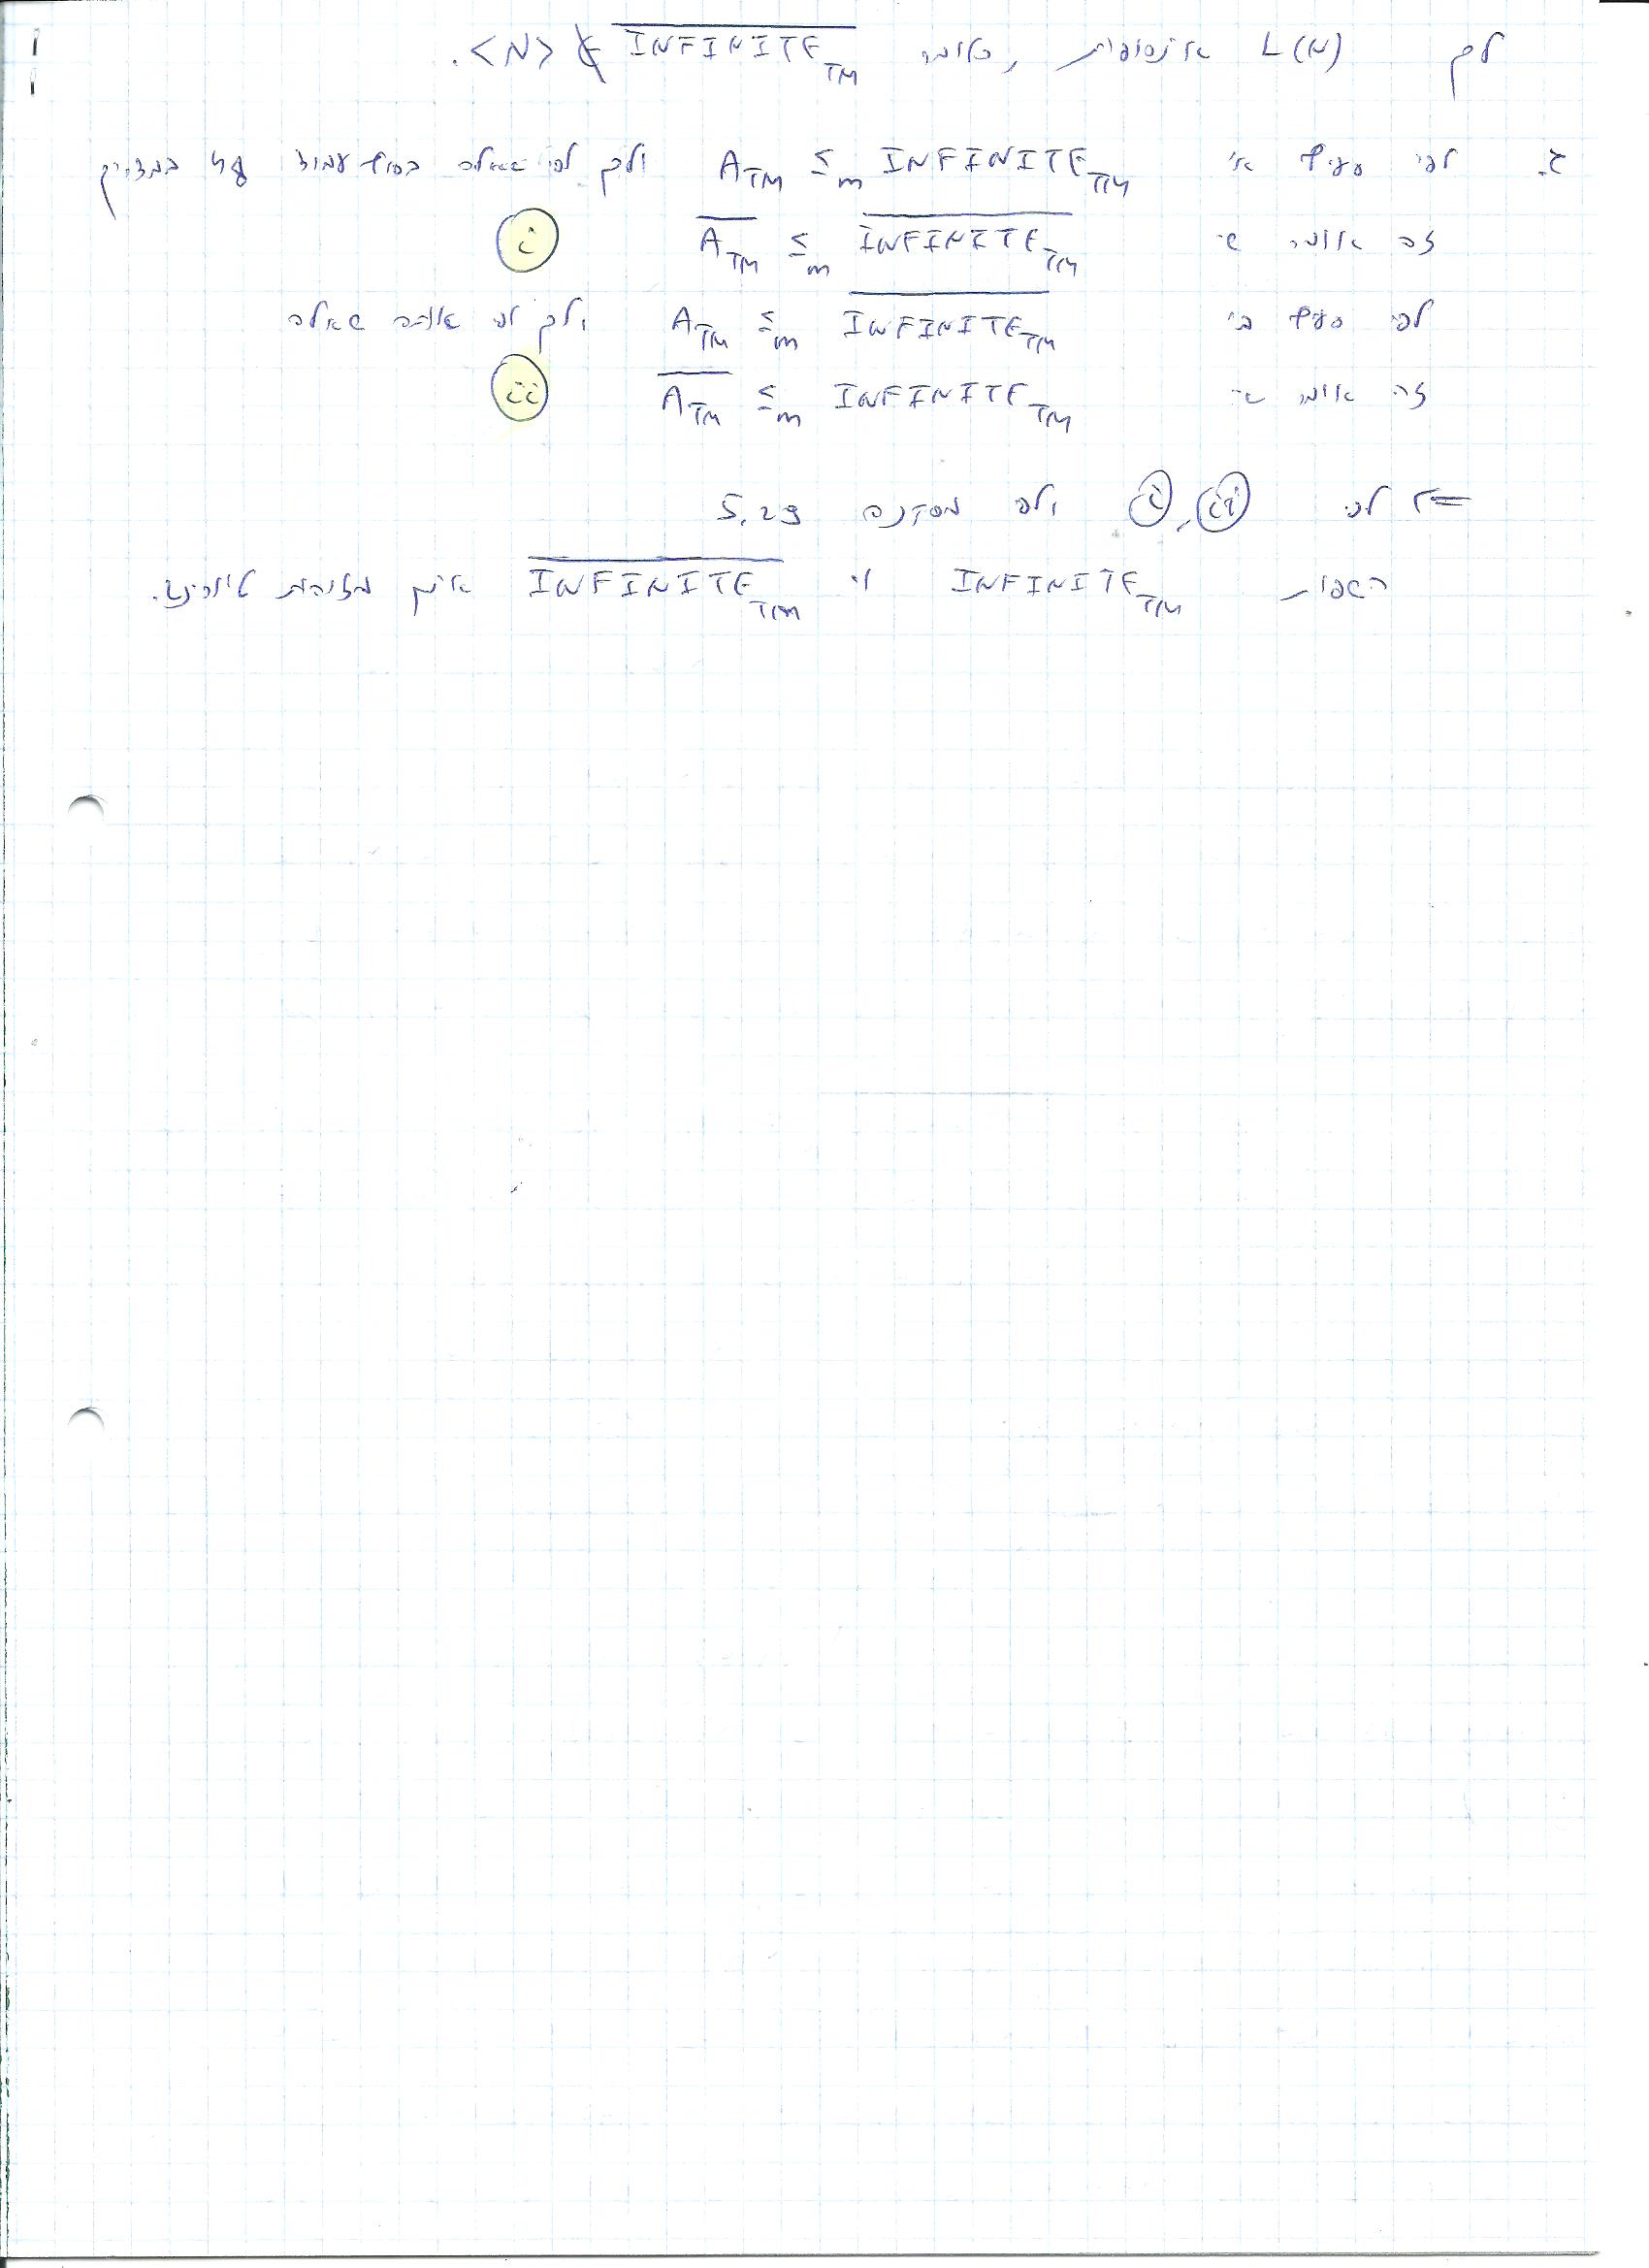 לכן L(N) אינסופית, כלומר <N> ∉ \overline{INFINITE_{TM}}.
ג. לפי סעיף א' A_{TM} ≤_m INFINITE_{TM} ולכן לפי שאלה בסוף עמוד במדריך
זה אומר ש- \overline{A_{TM}} ≤_m \overline{INFINITE_{TM}} (i)
לפי סעיף ב' A_{TM} ≤_m \overline{INFINITE_{TM}} ולכן לפי אותה שאלה
זה אומר ש- \overline{A_{TM}} ≤_m INFINITE_{TM} (ii)
<= לפי (ii), (i) ולפי מסקנה 5.29
השפות INFINITE_{TM} ו- \overline{INFINITE_{TM}} אינן מזוהות טיורינג.